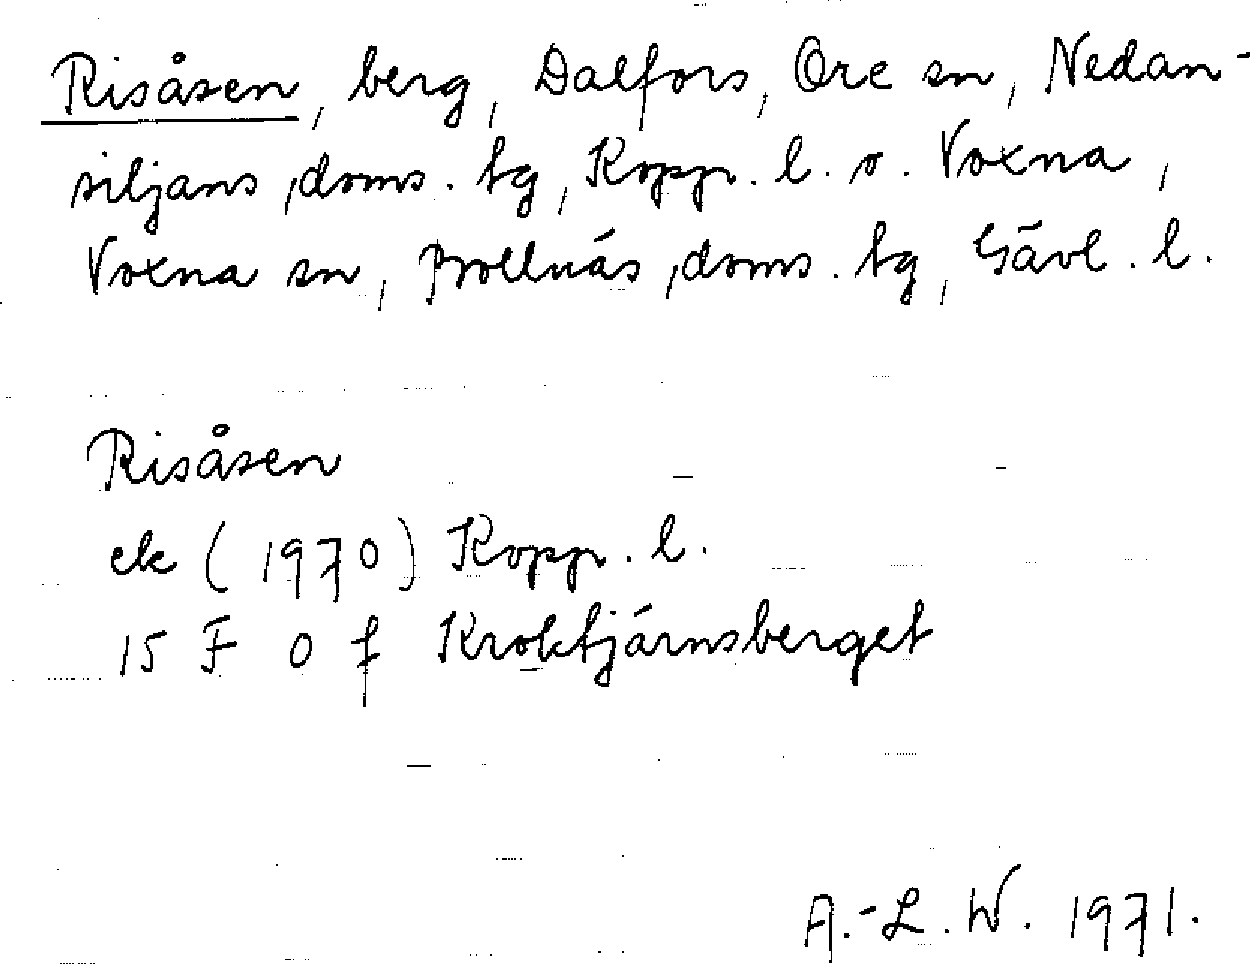 Risåsen, berg, Dalfors, Ore sn, Nedan-
siljans ,doms. tg, Kopp. l. o. Voxna,
Voxna sn, Bollnäs ,doms. tg, Gävl. l.
Risåsen
ek (1970) Kopp. l.
15 F 0 f Kroktjärnsberget
A.-L. W. 1971.